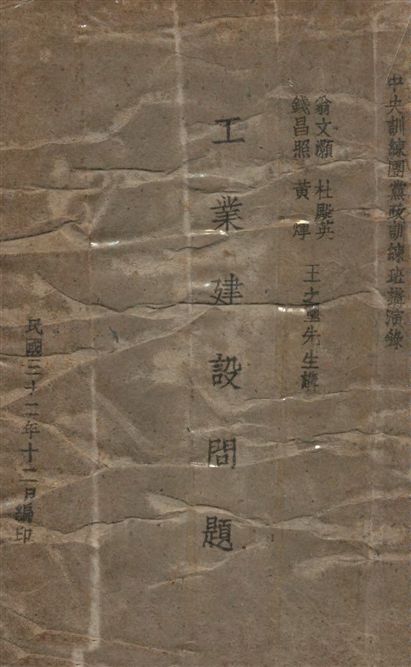 中央訓練團黨政訓練班講演錄
翁文灝 杜殿英
錢昌照 黃煇 王之 先生講
工業建設問題
民國三十二年十二月編印